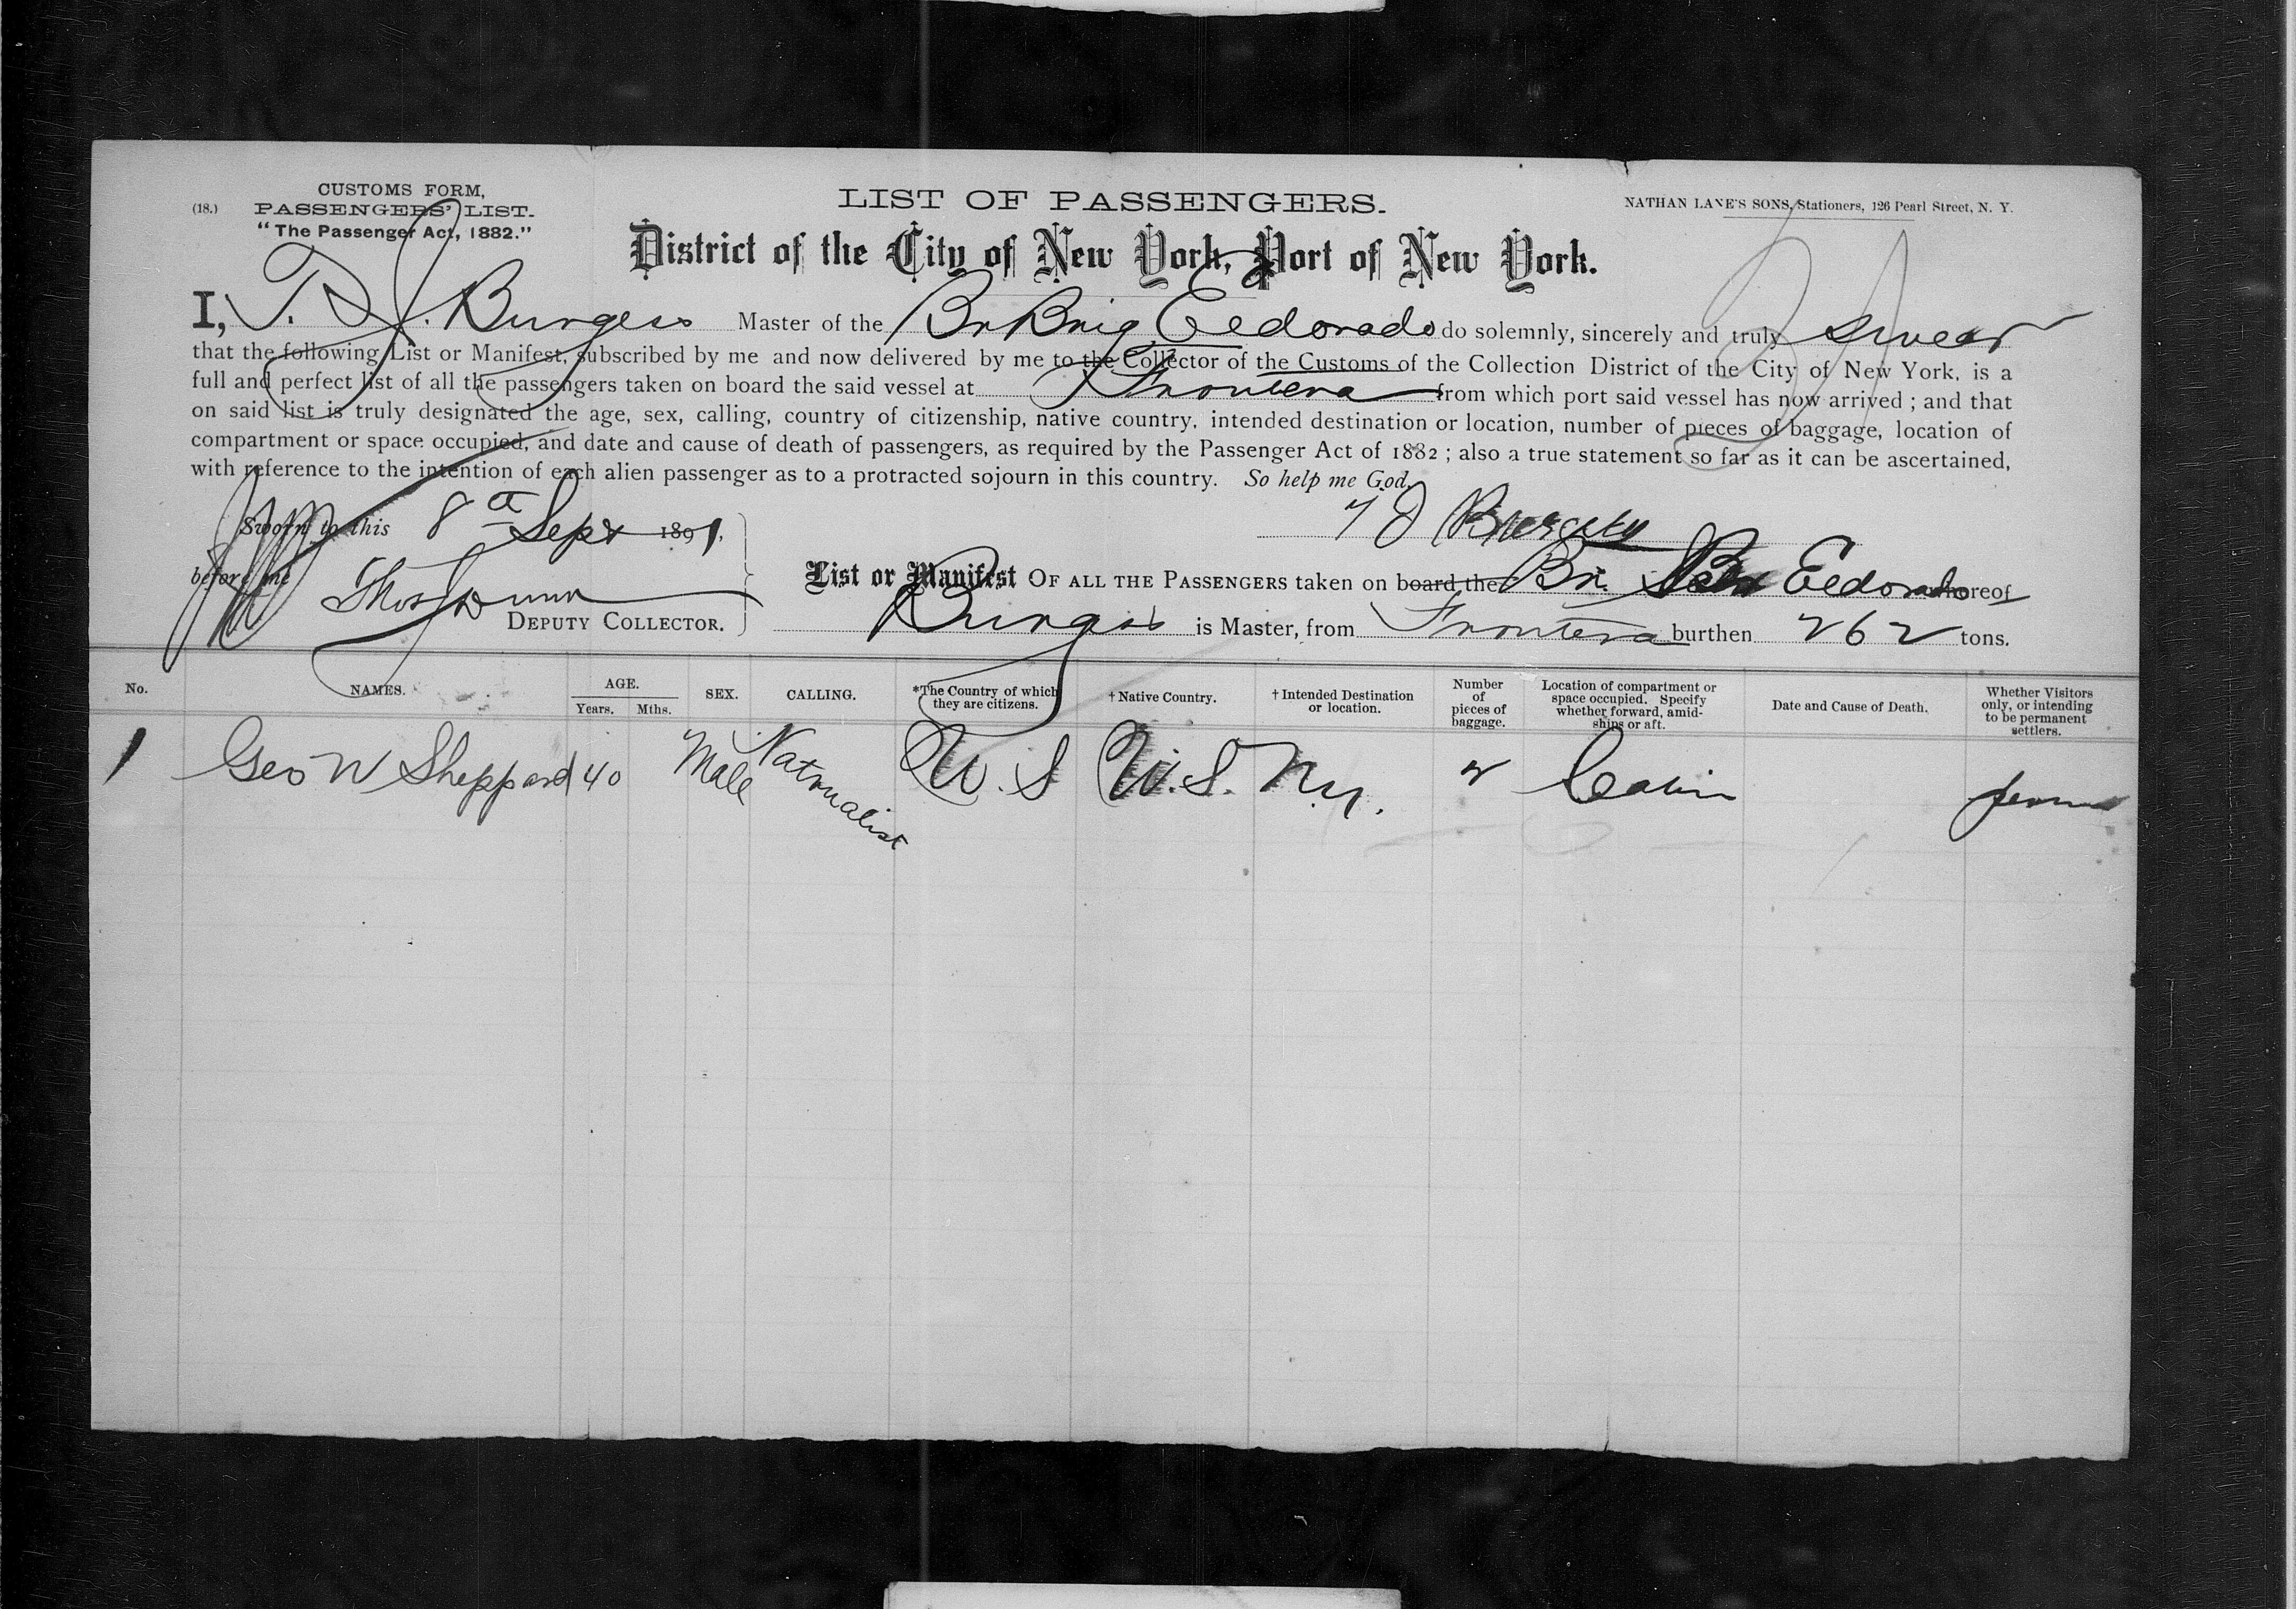 (18.)
CUSTOMS FORM,
PASSENGERS' LIST.
"The Passenger Act, 1882."
LIST OF PASSENGERS.
NATHAN LANE'S SONS, Stationers, 126 Pearl Street, N. Y.
District of the City of New York, Port of New York.
I, T. J. Burgess Master of the Br Brig Eldorado do solemnly, sincerely and truly swear
that the following List or Manifest, subscribed by me and now delivered by me to the Collector of the Customs of the Collection District of the City of New York, is a
full and perfect list of all the passengers taken on board the said vessel at Frontera from which port said vessel has now arrived ; and that
on said list is truly designated the age, sex, calling, country of citizenship, native country, intended destination or location, number of pieces of baggage, location of
compartment or space occupied, and date and cause of death of passengers, as required by the Passenger Act of 1882 ; also a true statement so far as it can be ascertained,
with reference to the intention of each alien passenger as to a protracted sojourn in this country. So help me God.
Sworn to this 8 Sept 1891,
T J Burgess
before me Thos Dunn
DEPUTY COLLECTOR.
List or Manifest OF ALL THE PASSENGERS taken on board the Br. Eldorado whereof
Burgess is Master, from Frontera burthen 262 tons.
No.
NAMES.
AGE.
Years. Mths.
SEX.
CALLING.
*The Country of which
they are citizens.
† Native Country.
† Intended Destination
or location.
Number
of
pieces of
baggage.
Location of compartment or
space occupied. Specify
whether forward, amid-
ships or aft.
Date and Cause of Death.
Whether Visitors
only, or intending
to be permanent
settlers.
1 Geo W Sheppard 40 Male Naturalist U.S U.S. N.Y. 2 Cabin